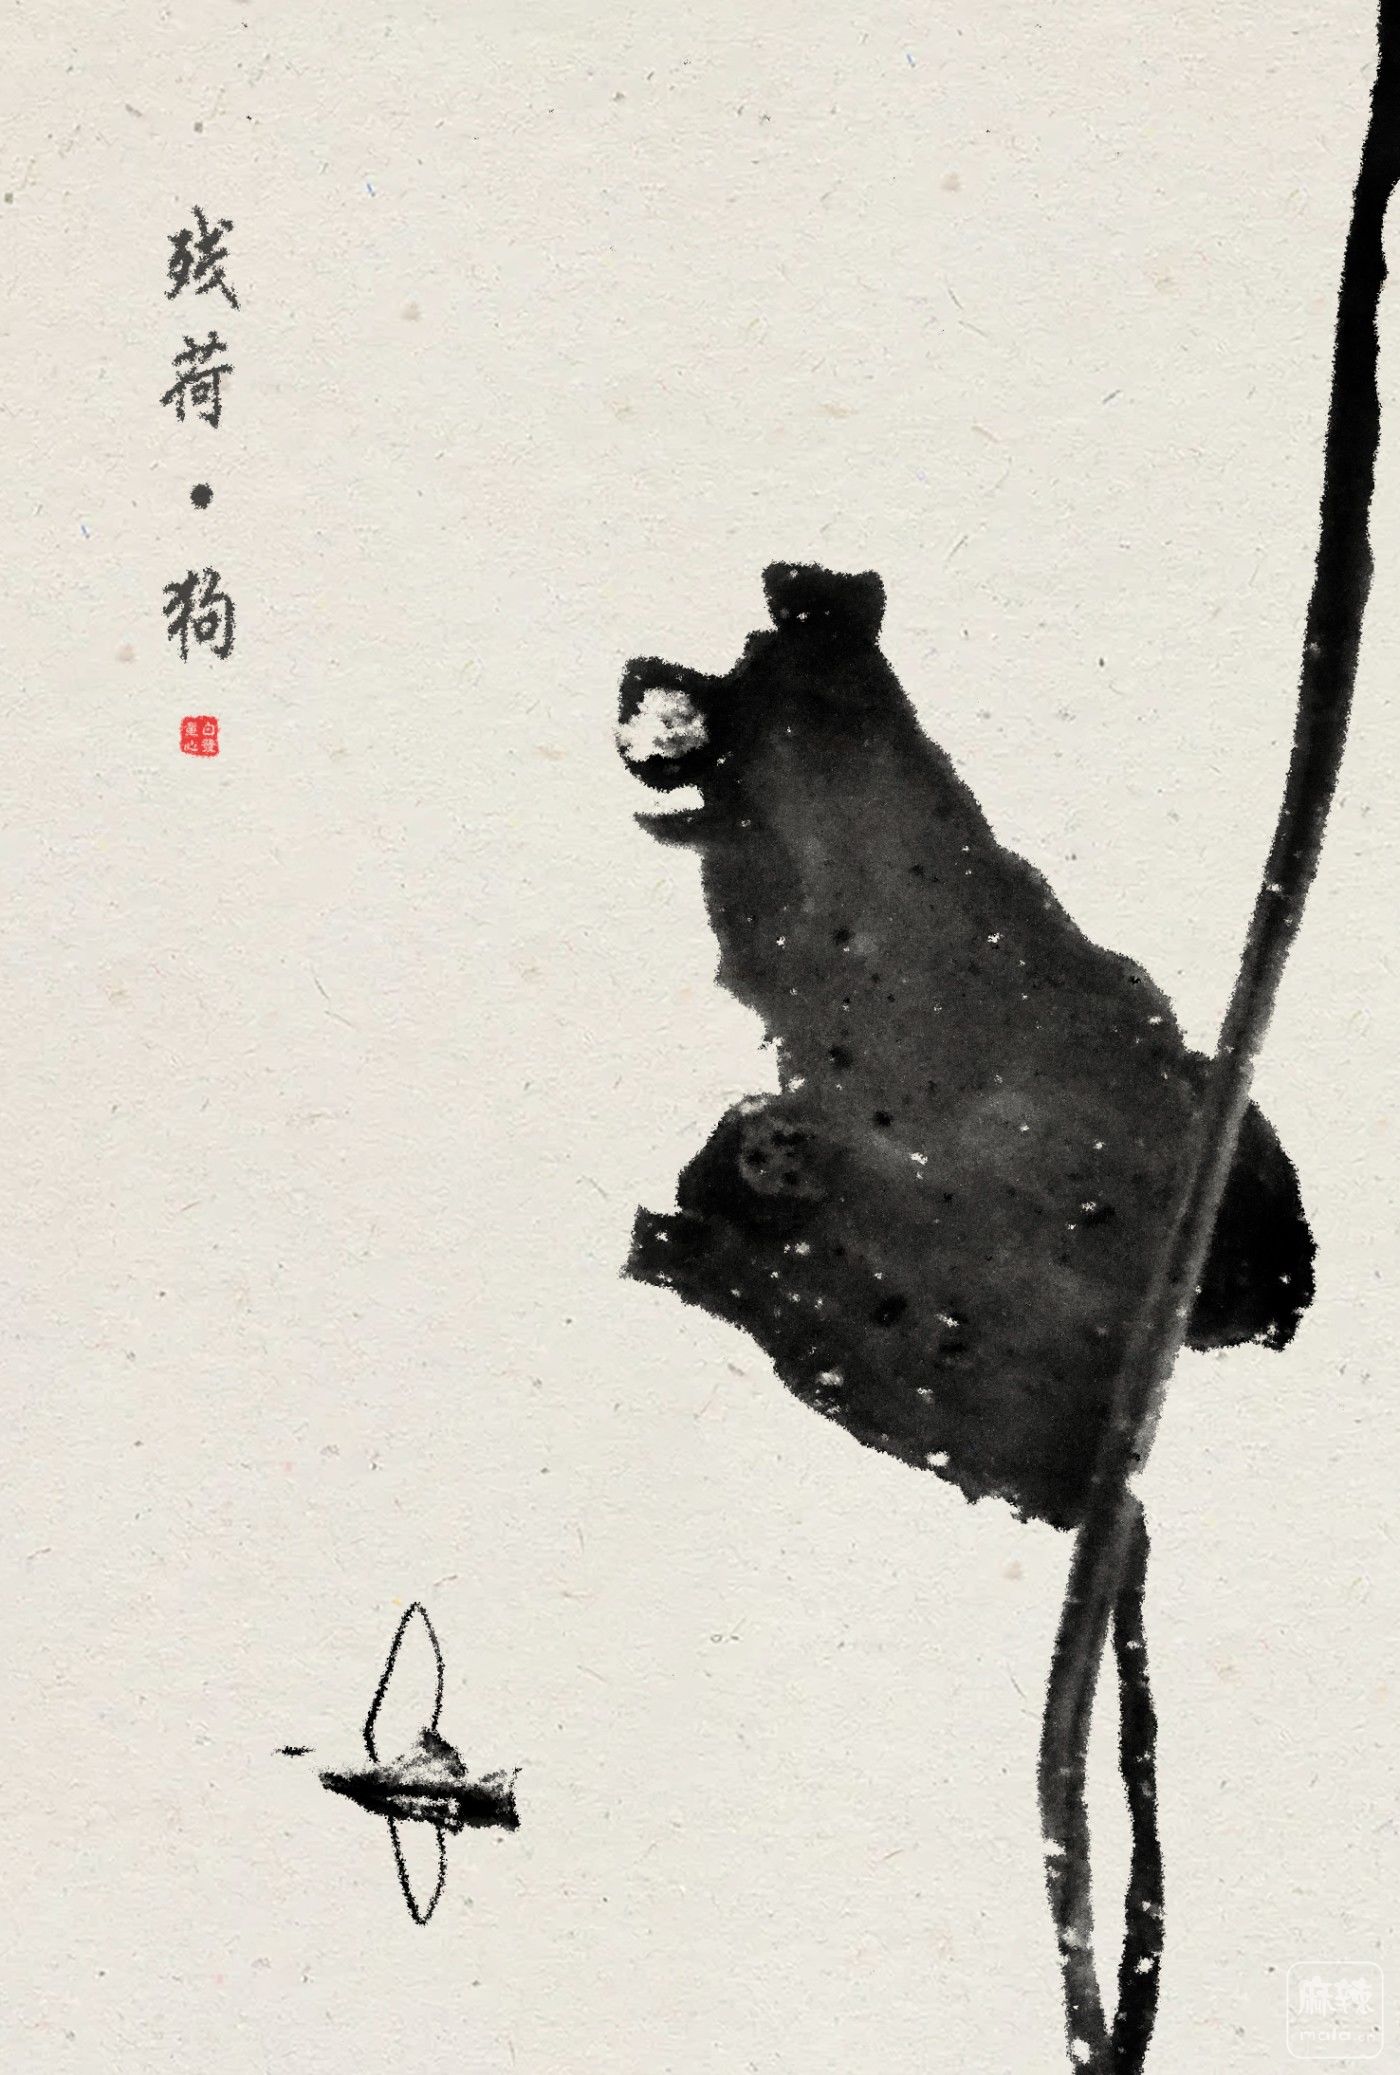 残荷·狗
白发
童心
麻辣
mala.cn